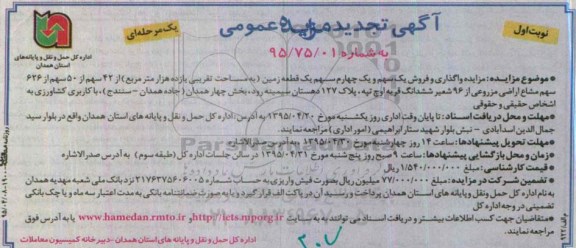 آگهی تجدید مزایده عمومی
نوبت اول
یک مرحله‌ای
به شماره ۹۵/۷۵/۰۱
اداره کل حمل و نقل و پایانه‌های
استان همدان
• موضوع مزایده: مزایده واگذاری و فروش یک سهم و یک چهارم سهم یک قطعه زمین (به مساحت تقریبی یازده هزار متر مربع) از ۴۲ سهم از ۵۰ سهم از ۶۲۶
سهم مشاع اراضی مزروعی از ۹۶ شعیر ششدانگ قریه اوچ تپه، پلاک ۱۲۷ دهستان سیمینه رود، بخش چهار همدان (جاده همدان - سنندج)، با کاربری کشاورزی به
اشخاص حقیقی و حقوقی
• مهلت و محل دریافت اسناد: تا پایان وقت اداری روز یکشنبه مورخ ۱۳۹۵/۰۴/۲۰ به آدرس: اداره کل حمل و نقل و پایانه های استان همدان واقع در بلوار سید
جمال الدین اسدآبادی - نبش بلوار شهید ستار ابراهیمی (امور اداری) مراجعه نمایند.
مهلت تحویل پیشنهادها: ساعت ۱۴ روز چهارشنبه مورخ
• زمان و محل بازگشایی پیشنهادها: ساعت ۹ صبح روز پنج شنبه مورخ ۱۳۹۵/۰۴/۳۱ در سالن جلسات اداره کل (طبقه سوم) به آدرس صدرالاشاره
• قیمت کارشناسی: مبلغ ۱/۵۴۰/۰۰۰/۰۰۰ ریال
• تضمین شرکت در مزایده: مبلغ ۷۷/۰۰۰/۰۰۰ میلیون ریال بصورت فیش واریزی به حساب ۲۱۷۶۳۷۵۶۰۶۰۰۵ نزد بانک ملی شعبه مهدیه همدان
به نام اداره کل حمل و نقل و پایانه های استان همدان پرداخت و رسید آن در پاکت الف قرار گیرد و یا به صورت ضمانتنامه بانکی به مدت اعتبار سه ماه و یا چک بانکی
تضمینی در وجه اداره کل
• متقاضیان جهت کسب اطلاعات بیشتر و دریافت اسناد می توانند به سایت http://iets.mporg.ir و www.hamedan.rmto.ir یا به آدرس فوق
مراجعه نمایند.
اداره کل حمل و نقل و پایانه های استان همدان - دبیرخانه کمیسیون معاملات